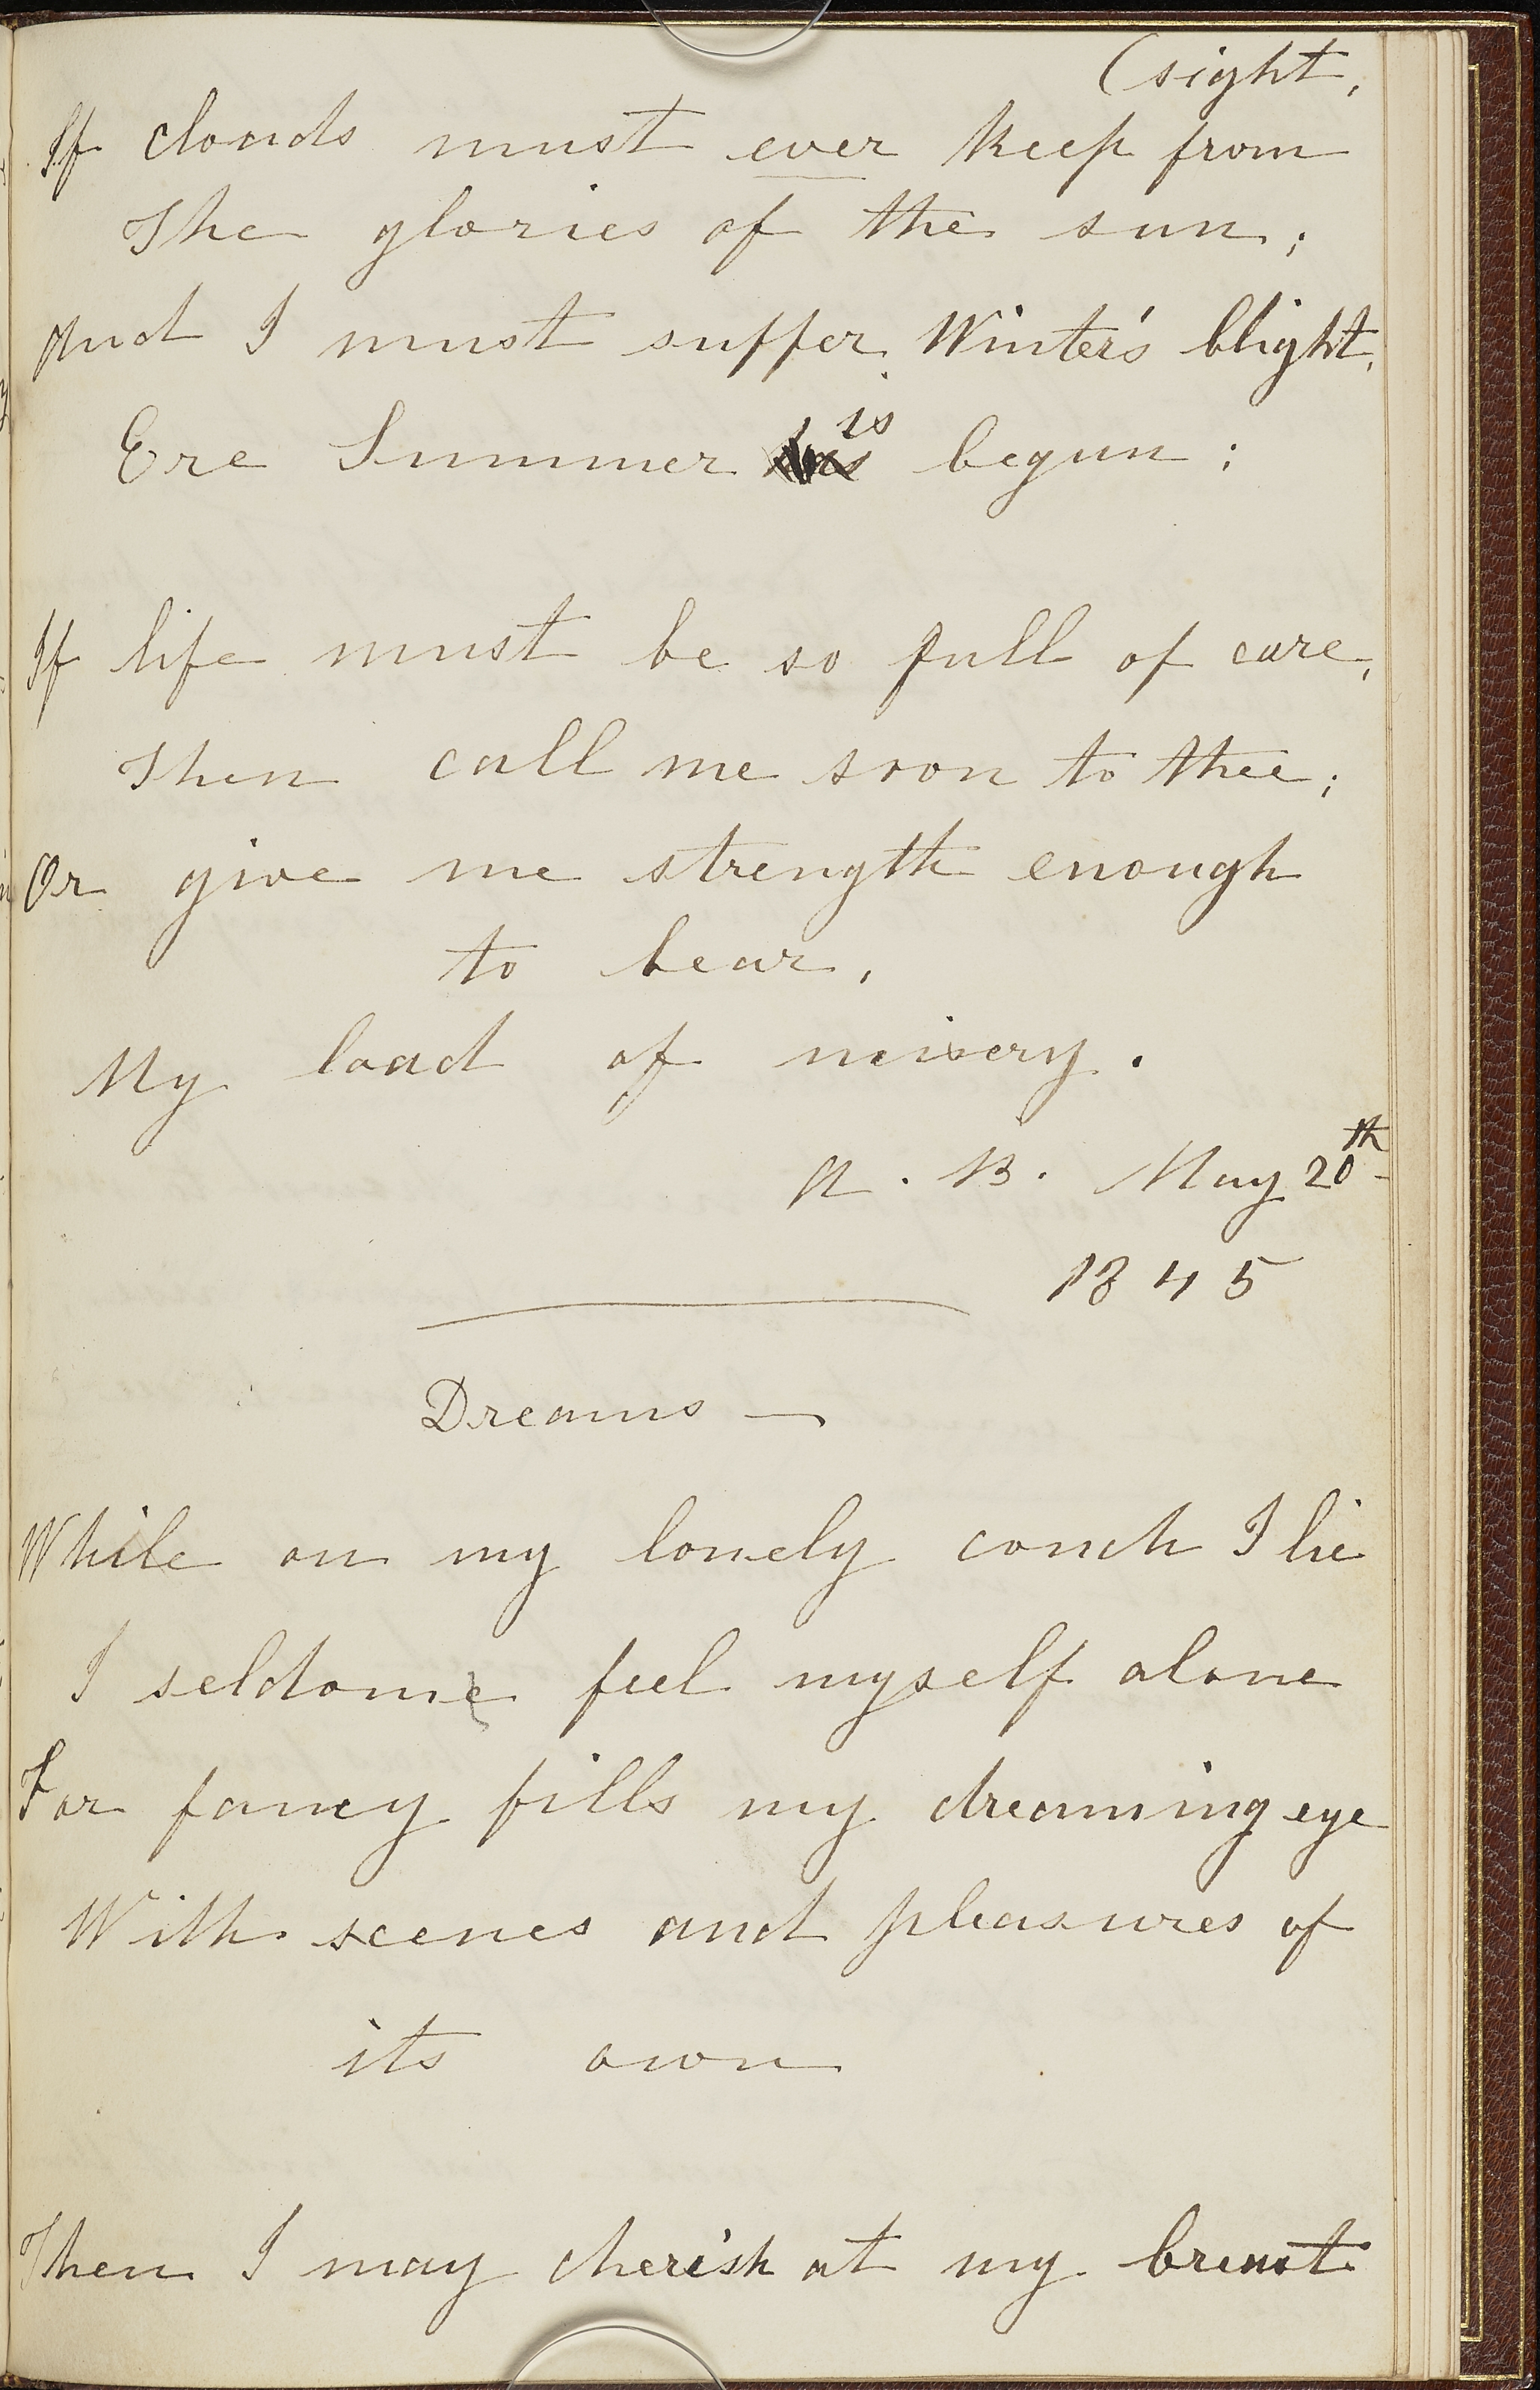 (sight,
If clouds must ever keep from
The glories of the sun;
And I must suffer Winter's blight,
Ere Summer is begun;
If life must be so full of care,
Then call me soon to thee;
Or give me strength enough
to bear,
My load of misery.
A. B. May 20th
1845
Dreams —
While on my lonely couch I lie
I seldome feel myself alone
For fancy fills my dreaming eye
With scenes and pleasures of
its own
Then I may cherish at my breast